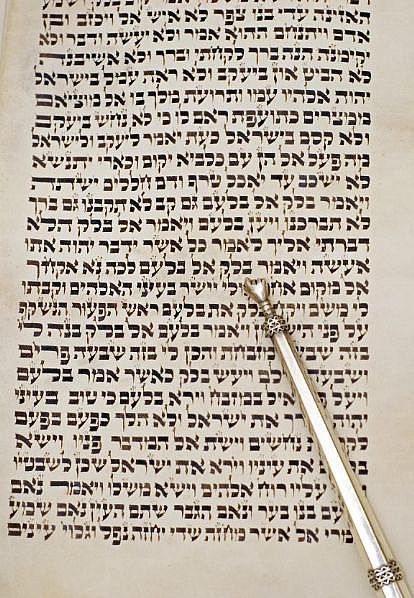 האזינה עדי בנו צפר לא איש אל ויכזב ובן
אדם ויתנחם ההוא אמר ולא יעשה ודבר ולא
יקימנה הנה ברך לקחתי וברך ולא אשיבנה
לא הביט און ביעקב ולא ראה עמל בישראל
יהוה אלהיו עמו ותרועת מלך בו אל מוציאם
ממצרים כתועפת ראם לו כי לא נחש ביעקב
ולא קסם בישראל כעת יאמר ליעקב ולישראל
מה פעל אל הן עם כלביא יקום וכארי יתנשא
לא ישכב עד יאכל טרף ודם חללים ישתה
ויאמר בלק אל בלעם גם קב לא תקבנו גם ברך
לא תברכנו ויען בלעם ויאמר אל בלק הלא
דברתי אליך לאמר כל אשר ידבר יהוה אתו
אעשה ויאמר בלק אל בלעם לכה נא אקחך
אל מקום אחר אולי יישר בעיני האלהים וקבתו
לי משם ויקח בלק את בלעם ראש הפעור הנשקף
על פני הישימן ויאמר בלעם אל בלק בנה לי
בזה שבעה מזבחת והכן לי בזה שבעה פרים
אילים ויעש בלק כאשר אמר בלעם
ויעל ואיל במזבח וירא בלעם כי טוב בעיני
יהוה לברך את ישראל ולא הלך כפעם בפעם
נחשים וישת אל המדבר פניו וישא
בלעם את עיניו וירא את ישראל שכן לשבטיו
עליו רוח אלהים וישא משלו ויאמר נאם
בלעם בנו בער ונאם הגבר שתם העין נאם שמע
אמרי אל אשר מחזה שדי יחזה נפל וגלוי עינים